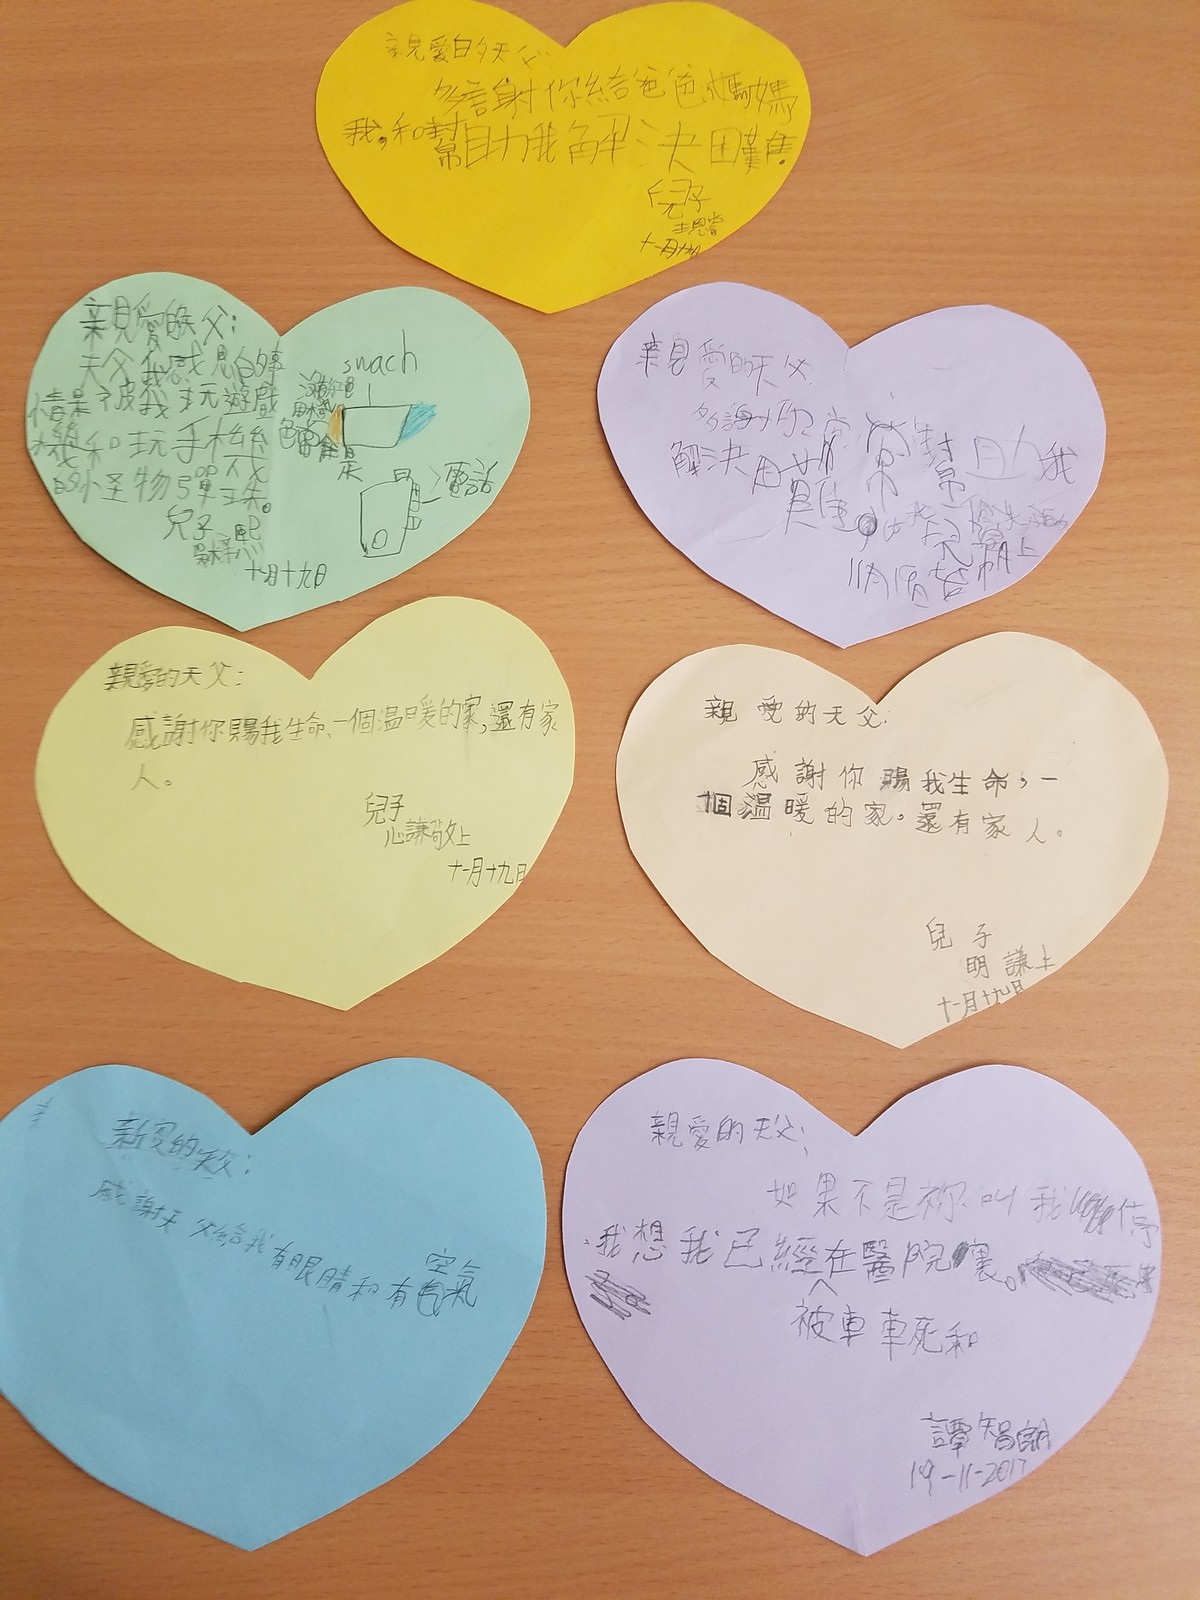 親愛的天父
多謝你給爸爸媽媽
我,和幫助我解決困難。
兒子
十一月十九日
親愛的天父:
天父我感恩的事
情果被我玩遊戲
機和玩手機
的小怪物彈珠。
兒子
十一月十九日
swach
電話
親愛的天父
多謝你常常幫助我
解決困難。
親愛的天父:
感謝你賜我生命、一個溫暖的家,還有家
人。
兒子
心謙敬上
十一月十九日
親愛的天父:
感謝你賜我生命,一
個溫暖的家。還有家人。
兒子
明謙上
十一月十九日
的天父:
感謝天父給我有眼睛和有空氣
親愛的天父:
如果不是祢叫我停
我想我已經在醫院裏。
被車車死和
譚智朗
19-11-2017